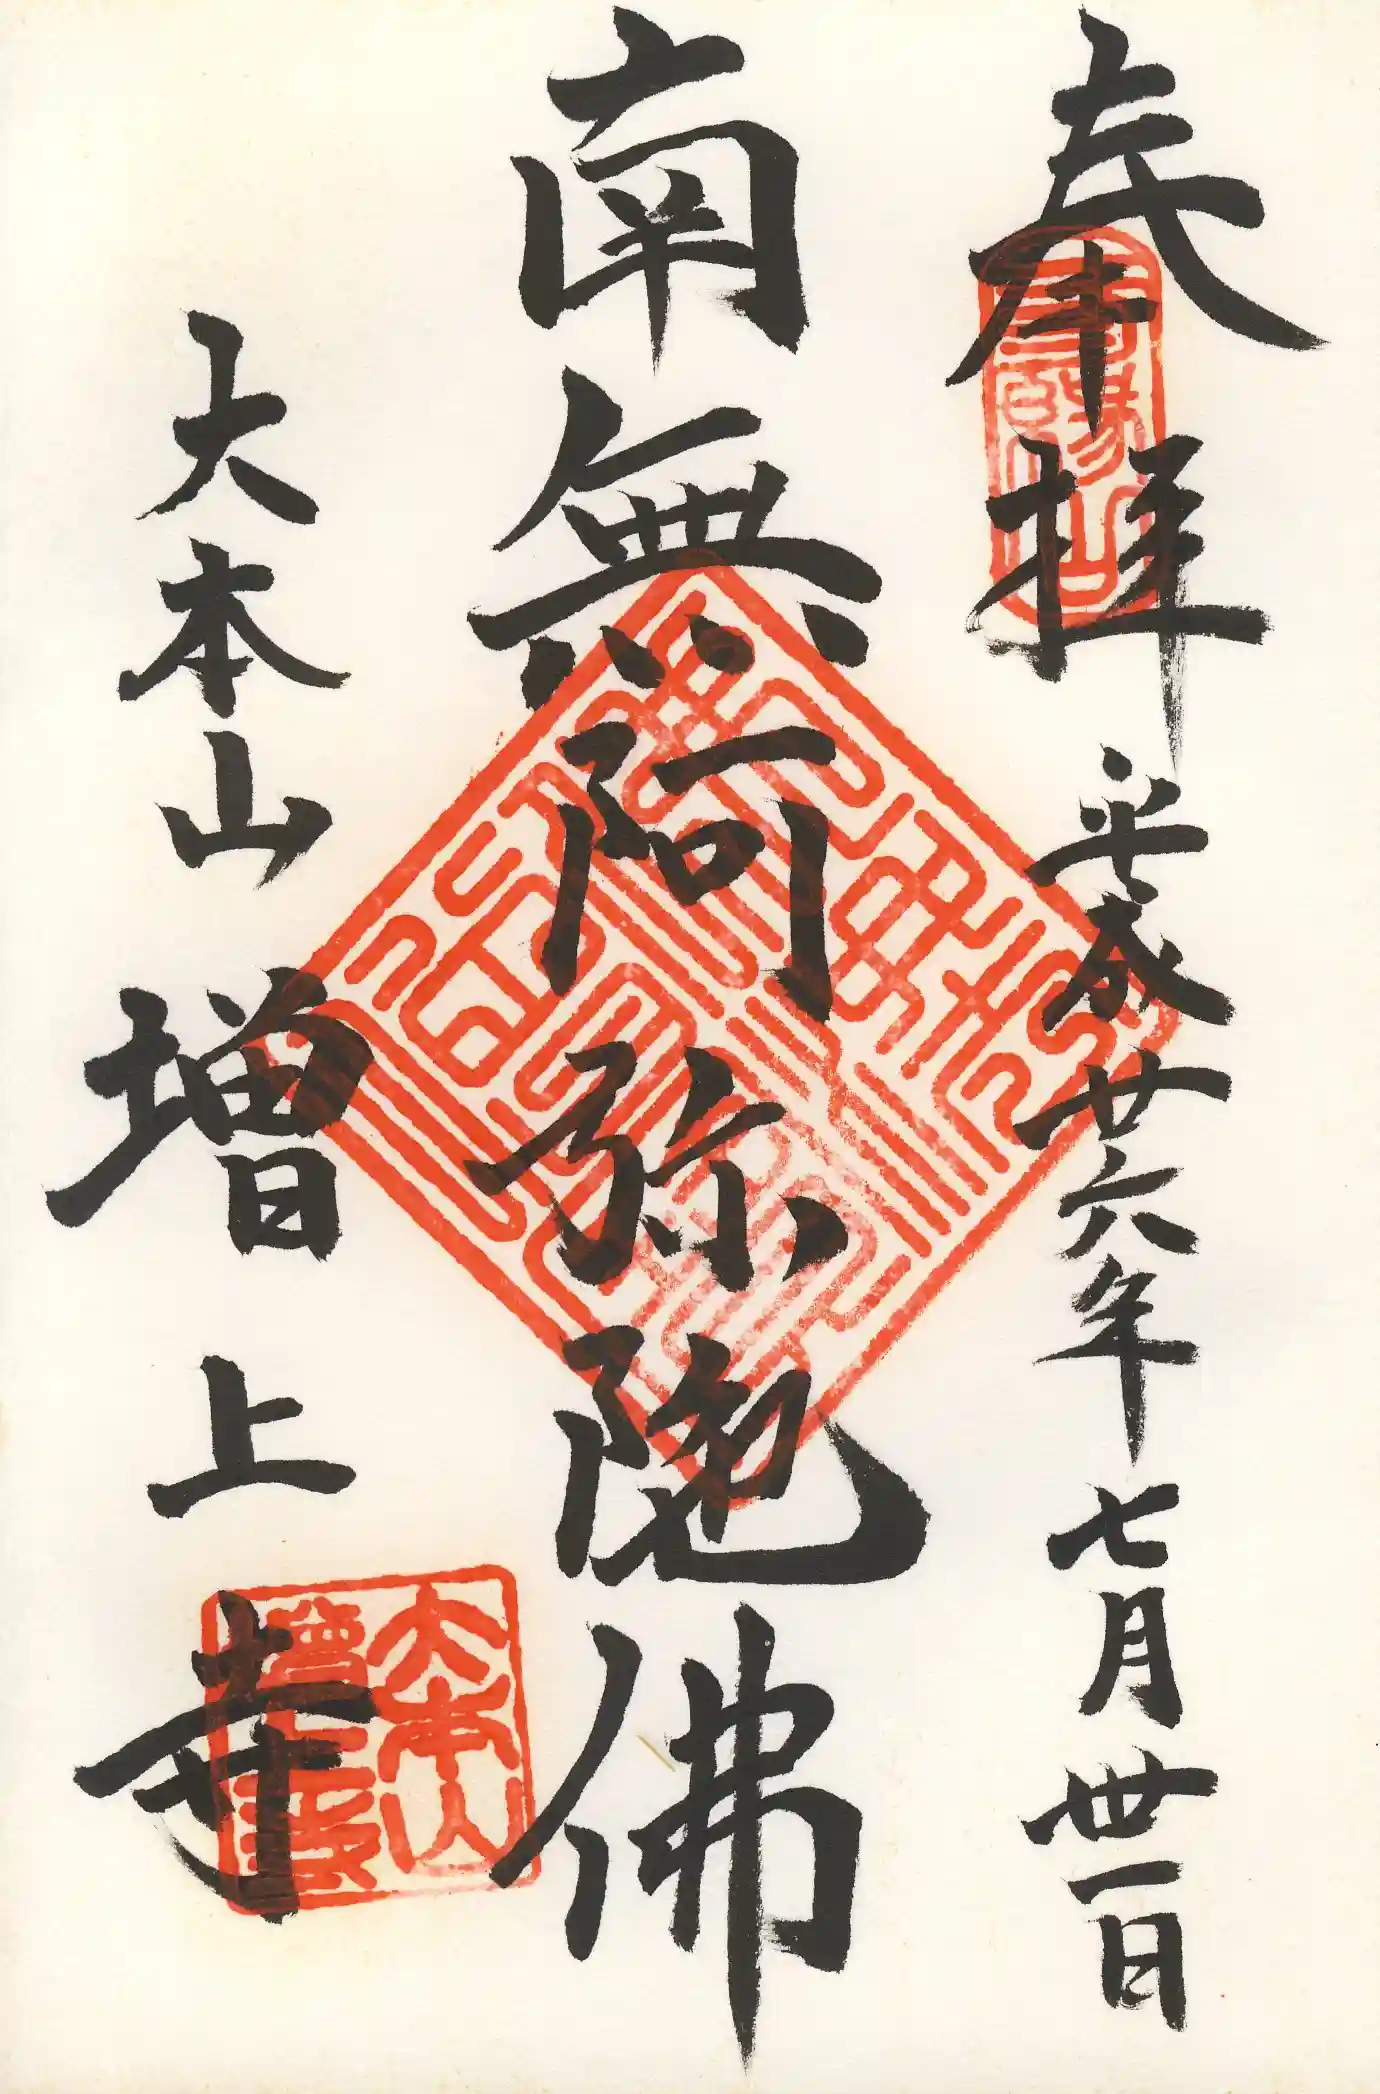 奉拝 平成廿六年七月卅一日
南無阿弥陀佛
大本山増上寺
大本山